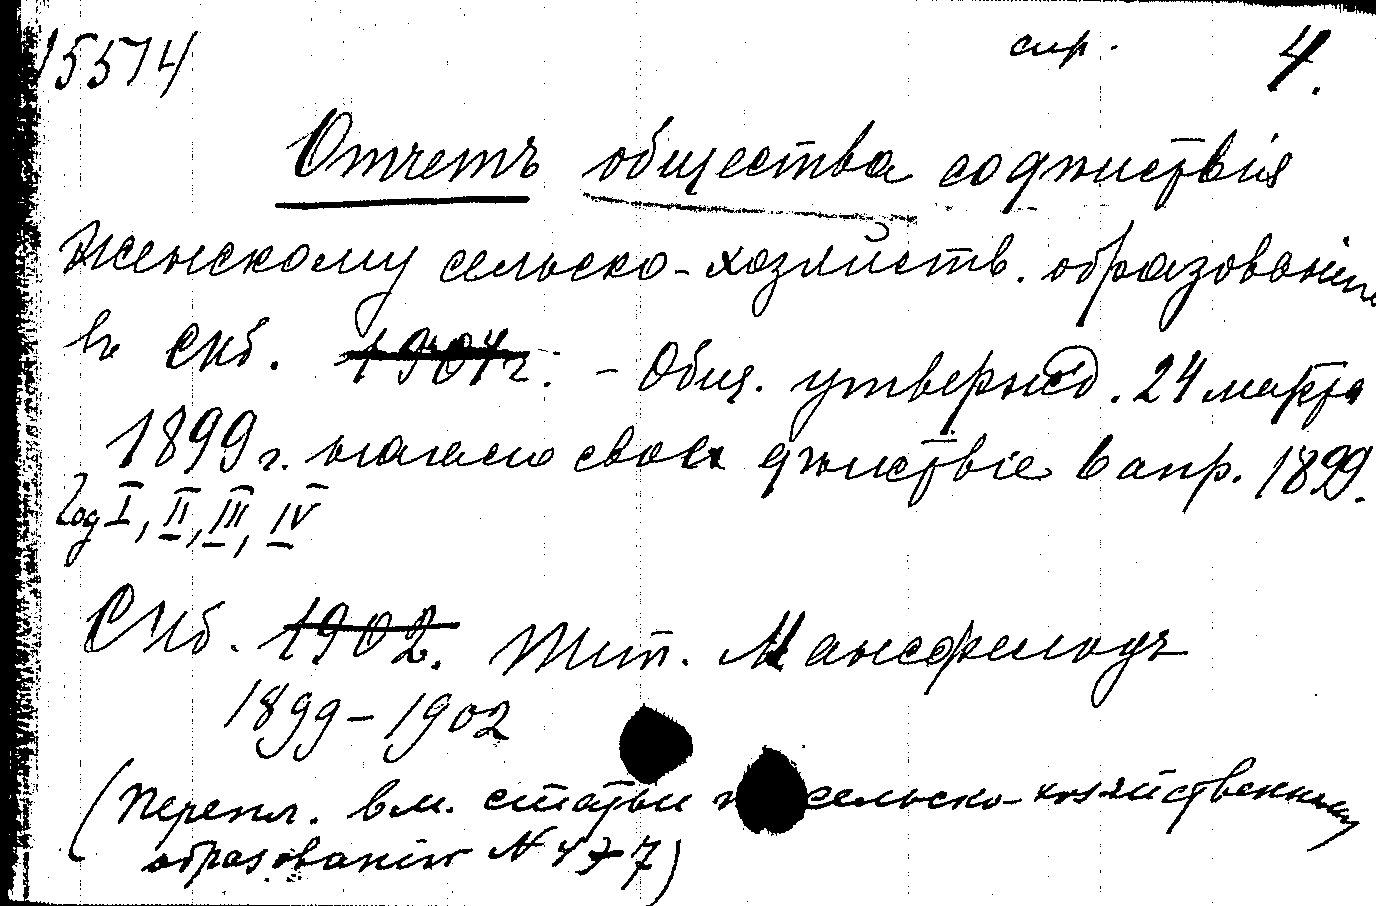 15574 стр. 4.
Отчетъ общества содѣйствія
женскому сельско-хозяйств. образованію
въ Спб. 1901г. - Общ. утвержд. 24 марта
1899 г. начало свои дѣйствіе в апр. 1899.
Год I, II, III, IV
СПб. 1902. Тип. Мансфельдъ
1899-1902
(Перепл. вм. статьи п сельско-хозяйственному
образованію N 4 7)